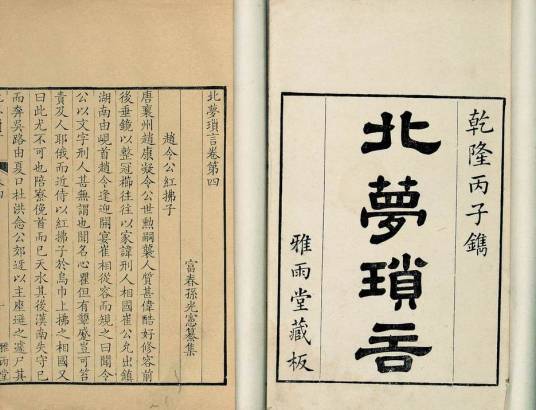 乾隆丙子鐫
北夢瑣言
雅雨堂藏板
北夢瑣言卷第四
富春孫光憲纂集
趙令公紅拂子
唐襄州趙康凝令公世勲嗣襲人質甚偉酷好修容前
後垂鏡以整冠櫛往往以家諱刑人相國崔公允出鎮
湖南由峴首趙令逢迎開宴崔相從容而規之曰聞令
公以文字刑人甚無謂也聞名心瞿但有顰蹙豈可笞
責及人耶俄而近侍以紅拂子於烏巾上拂之相國又
曰此尤不可也陪寮俛首而已天水其後漢南失守已
而奔吳路由夏口杜洪念公郊逢以主座遜之遽尸其
雅雨堂